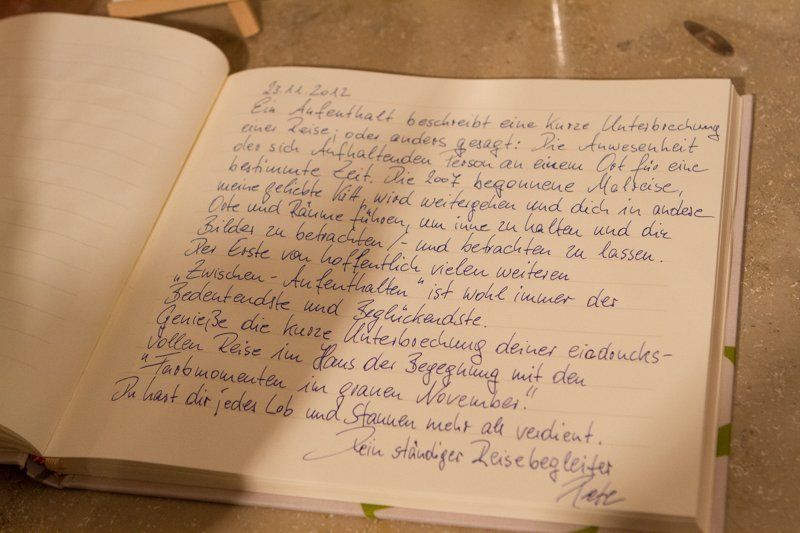 23.11.2012
Ein Aufenthalt beschreibt eine kurze Unterbrechung
einer Reise; oder anders gesagt: Die Anwesenheit
der sich Aufhaltenden Person an einem Ort für eine
bestimmte Zeit. Die 2007 begonnene Malreise,
meine geliebte Kitt, wird weitergehen und dich in andere
Orte und Räume führen, um inne zu halten und die
Bilder zu betrachten /- und betrachten zu lassen.
Der Erste von hoffentlich vielen weiteren
„Zwischen-Aufenthalten" ist wohl immer der
Bedeutendste und Beglückendste.
Genieße die kurze Unterbrechung deiner eindrucks-
vollen Reise im Haus der Begegnung mit den
„Farbmomenten im grauen November."
Du hast dir jedes Lob und Staunen mehr als verdient.
Dein ständiger Reisebegleiter